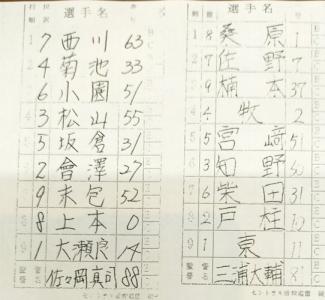 打順 守備 選手名
7 西川 63
4 菊池 33
6 小園 51
3 松山 55
5 坂倉 31
2 會澤 27
9 末包 52
8 上本 0
9 1 大瀬良 14
監督 署名 佐々岡真司 88
選手名
1 8 桑原 1
7 佐野 7
9 楠本 37
4 4 牧 2
5 5 宮﨑 51
6 3 知野
7 6 柴田 31
8 2 戸柱 10
9 1 東 11
監督 署名 三浦大輔